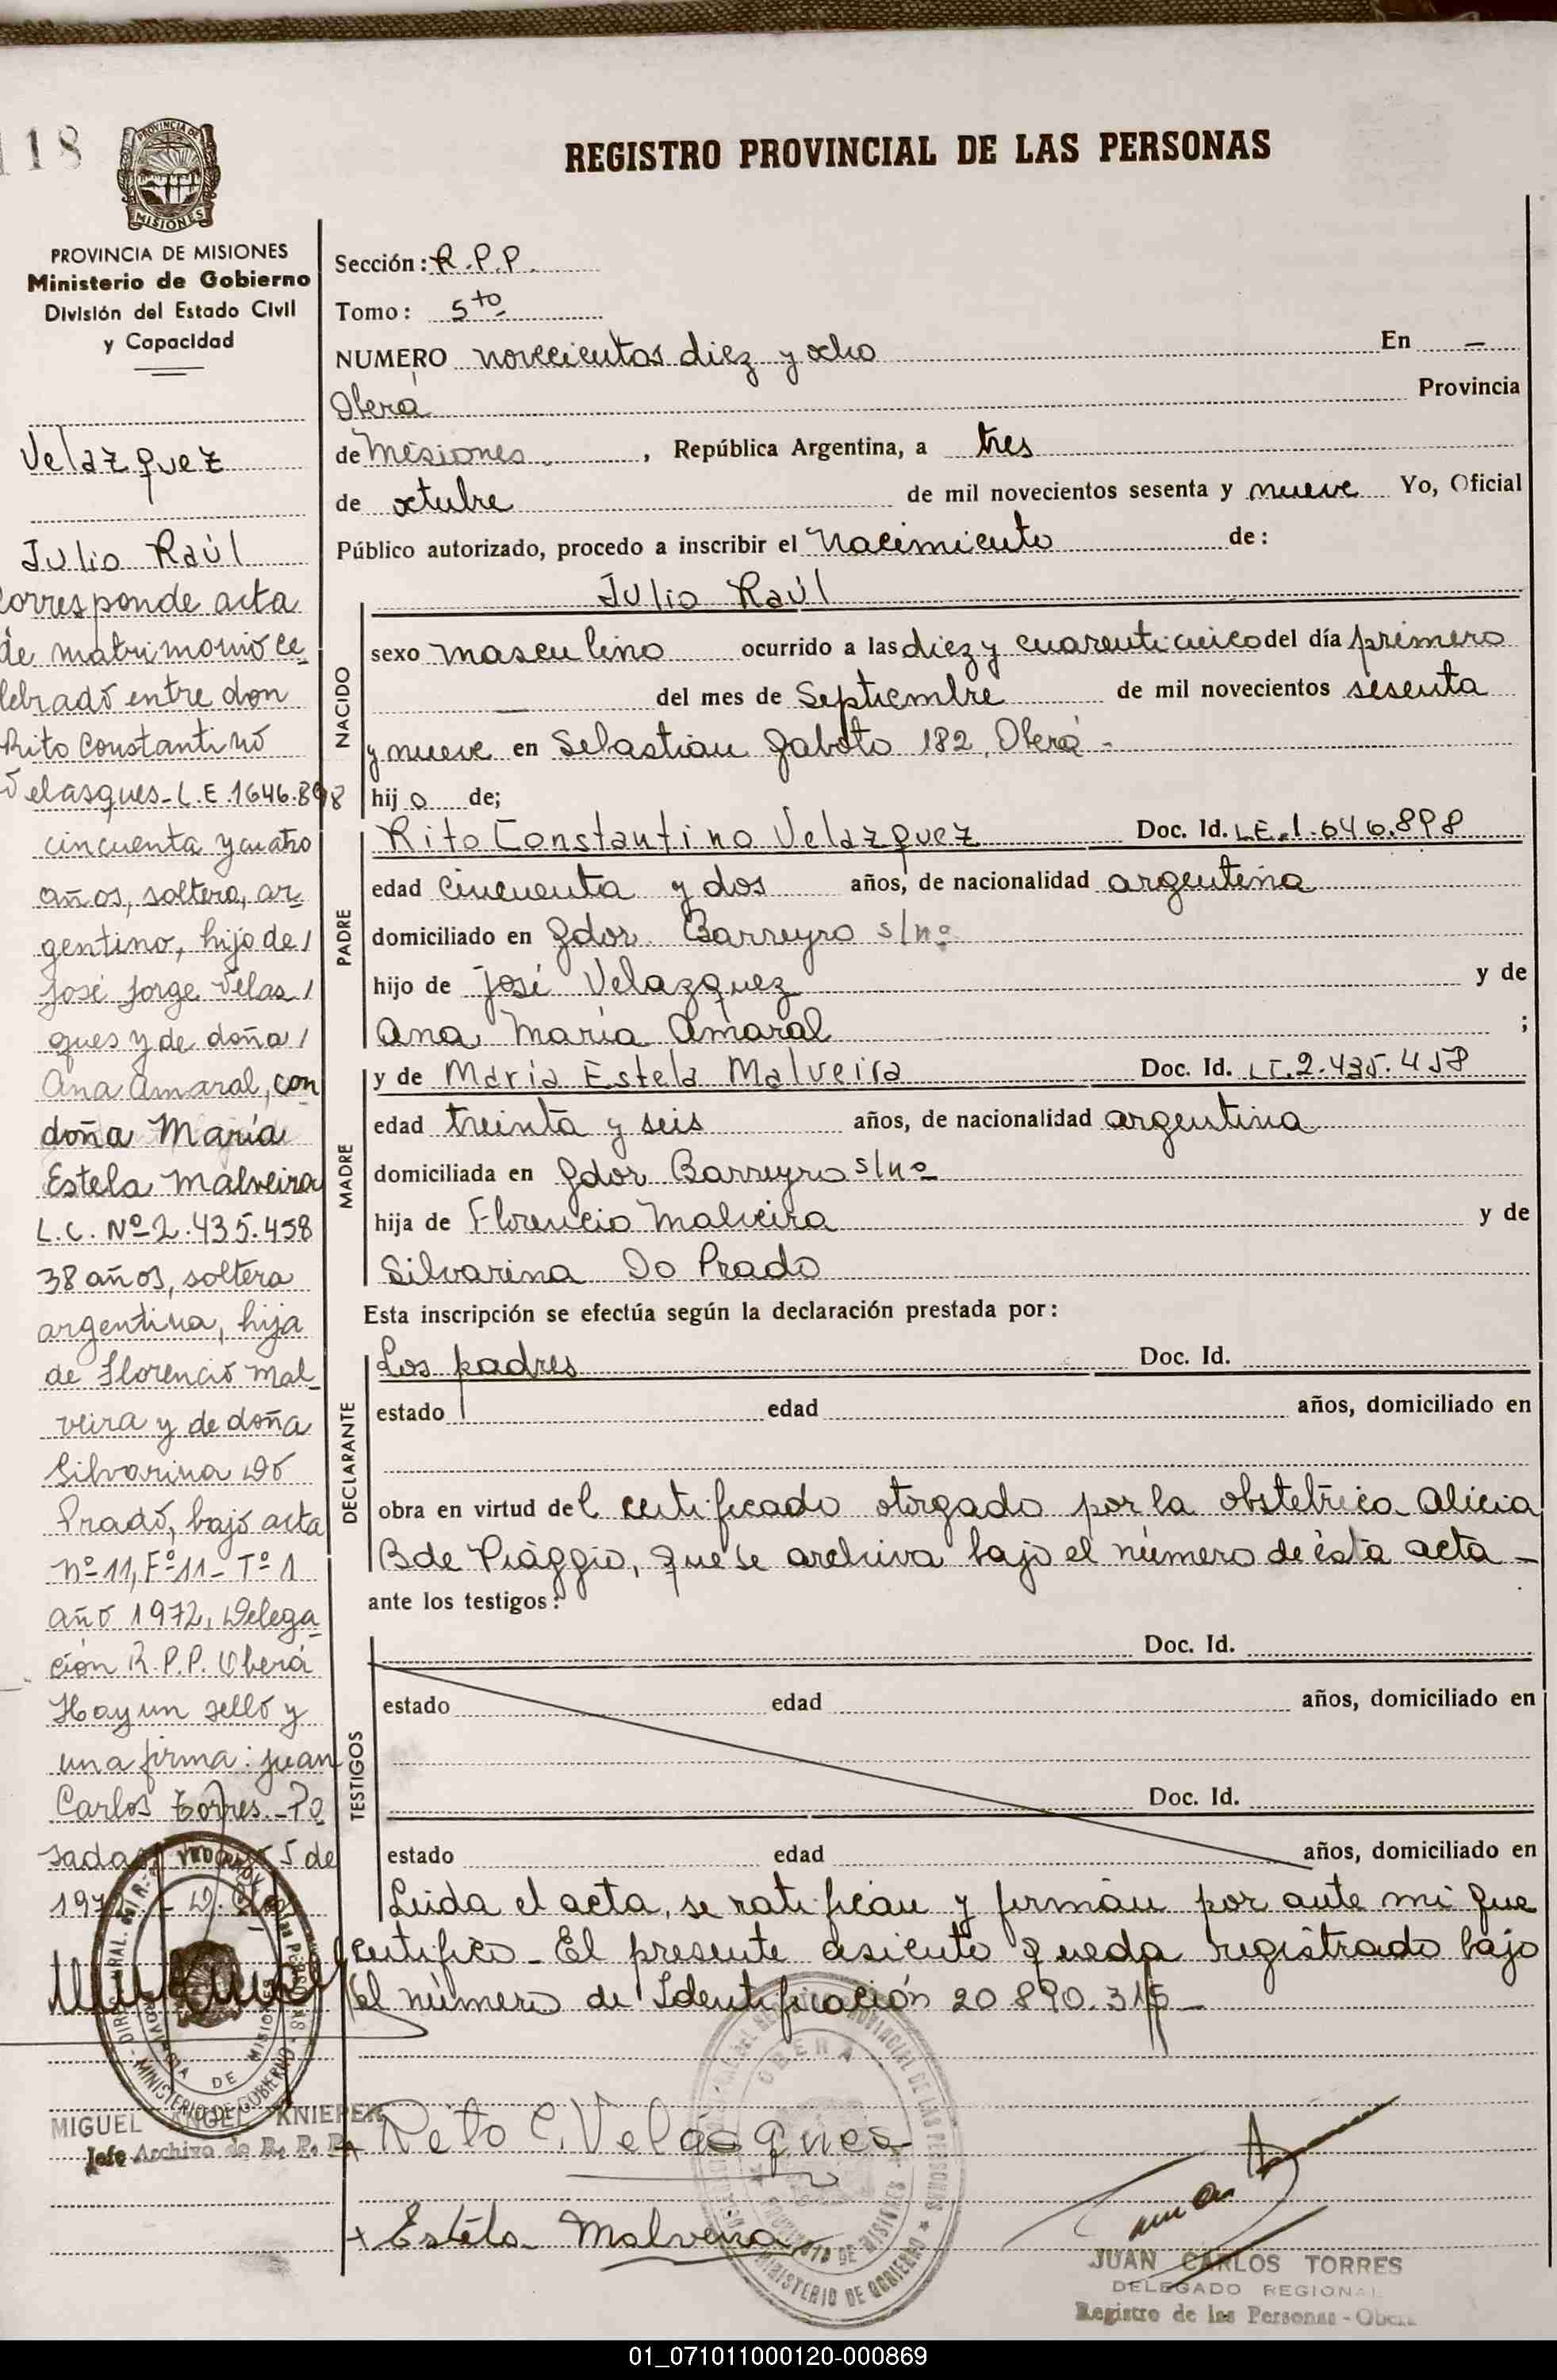 118
PROVINCIA DE
MISIONES
REGISTRO PROVINCIAL DE LAS PERSONAS
PROVINCIA DE MISIONES
Ministerio de Gobierno
División del Estado Civil
y Capacidad
Velazquez
Julio Raúl
Corresponde acta
de matrimonio ce-
lebrado entre don
Rito Constantino
Velasques-L.E.1646.898
cincuenta y cuatro
años, soltero, ar-
gentino, hijo de/
José Jorge Velas/
ques y de doña/
Ana Amaral, con
doña María
Estela Malveira
L.C. Nº 2.435.458
38 años, soltera
argentina, hija
de Florencio Mal-
veira y de doña
Silvarina Do
Prado, bajo acta
nº 11, Fº 11 - Tº 1
año 1972, Delega-
ción R.P.P. Oberá
Hay un sello y
una firma: Juan
Carlos Torres.-Po
sadas, 5 de
MIGUEL ANGEL KNIEPER
Jefe Archivo de R. P. P.
Sección: R.P.P.
Tomo: 5to
NUMERO novecientos diez y ocho En —
Oberá Provincia
de Misiones, República Argentina, a tres
de octubre de mil novecientos sesenta y nueve Yo, Oficial
Público autorizado, procedo a inscribir el Nacimiento de:
Julio Raúl
NACIDO
sexo masculino ocurrido a las diez y cuarenticinco del día primero
— del mes de Septiembre de mil novecientos sesenta
y nueve en Sebastian Gaboto 182, Oberá -
hijo de;
PADRE
Rito Constantino Velazquez Doc. Id. L.E.1.646.898
edad cincuenta y dos años, de nacionalidad argentina
domiciliado en Gdor. Barreyro s/nº
hijo de José Velazquez y de
Ana María Amaral ;
MADRE
y de María Estela Malveira Doc. Id. L.C.2.435.458
edad treinta y seis años, de nacionalidad argentina
domiciliada en Gdor Barreyro s/nº
hija de Florencio Malveira y de
Silvarina Do Prado
Esta inscripción se efectúa según la declaración prestada por:
DECLARANTE
Los padres Doc. Id.
estado edad años, domiciliado en
obra en virtud del certificado otorgado por la obstetrica Alicia
B de Piággio, que se archiva bajo el número de ésta acta -
ante los testigos:
TESTIGOS
Doc. Id.
estado edad años, domiciliado en
Doc. Id.
estado edad años, domiciliado en
Leida el acta, se ratifican y firman por ante mi que
certifico - El presente asiento queda registrado bajo
el número de Identificación 20.890.315 -
Rito C. Velásques
+ Estela Malveira
JUAN CARLOS TORRES
DELEGADO REGIONAL
Registro de las Personas - Oberá
01_071011000120-000869